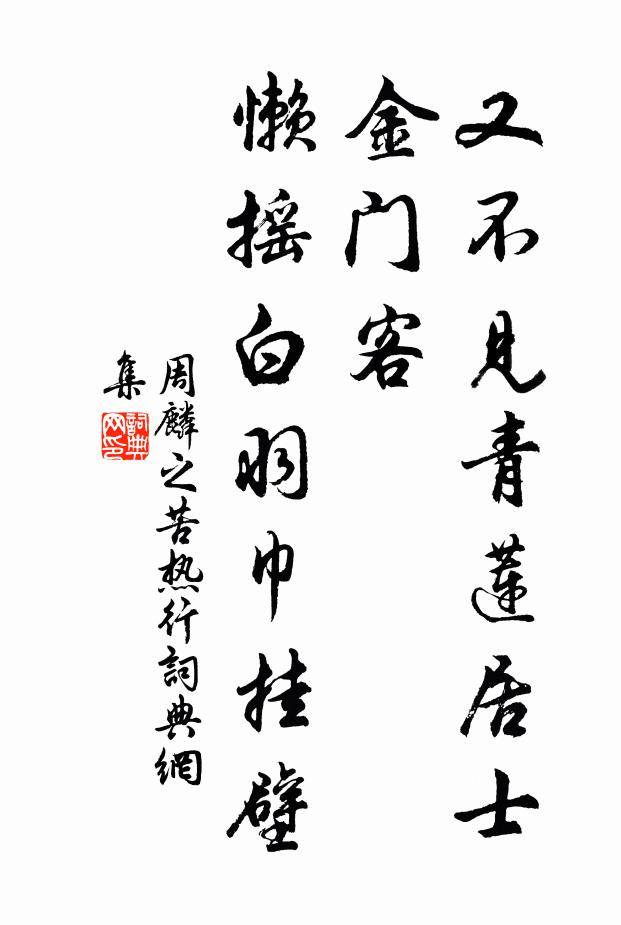 又不见青莲居士
金门客
懒摇白羽巾挂壁
周麟之苦热行詞典網
集
詞典網印